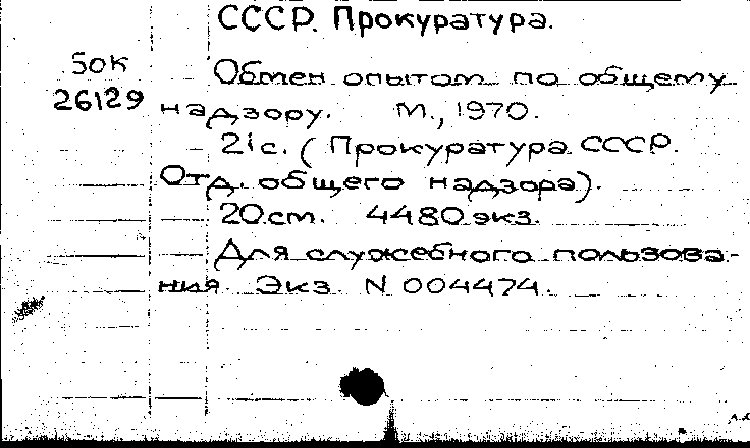 СССР. Прокуратура.
50К
26129
Обмен опытом по общему
надзору. М., 1970.
21с. (Прокуратура СССР.
Отд. общего надзора).
20 см. 4480 экз.
Для служебного пользова-
ния. Экз. N 004474.